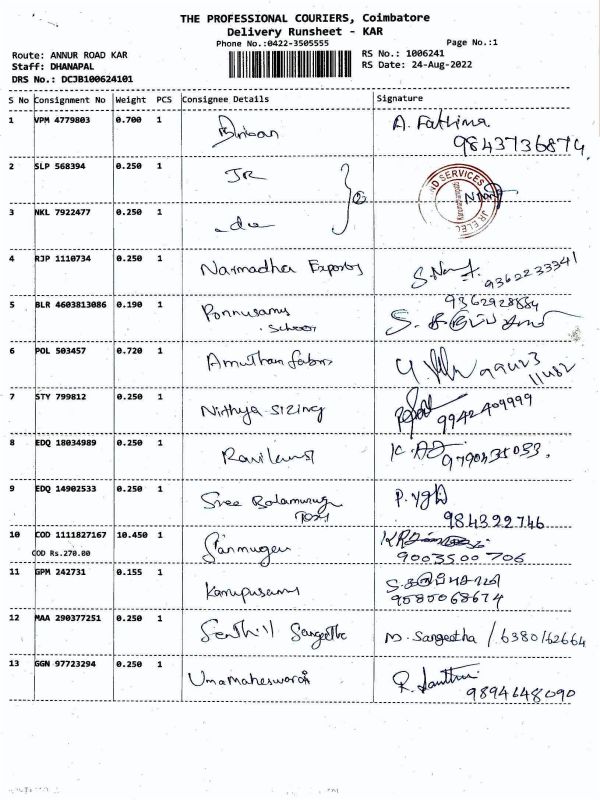 THE PROFESSIONAL COURIERS, Coimbatore
Delivery Runsheet - KAR
Phone No.:0422-3505555
Page No.:1
Route: ANNUR ROAD KAR
RS No.: 1006241
Staff: DHANAPAL
RS Date: 24-Aug-2022
DRS No.: DCJB100624101
S No Consignment No Weight PCS Consignee Details Signature
1 VPM 4779803 0.700 1 A. Fathima
9843736874
2 SLP 568394 0.250 1 JR
3 NKL 7922477 0.250 1 do
4 RJP 1110734 0.250 1 Narmadha Exports 9362233341
5 BLR 4603813086 0.190 1 Ponnusamy 9362928884
School
6 POL 503457 0.720 1 Amuthan fabrics
7 STY 799812 0.250 1 Nithya Sizing 9942409999
8 EDQ 18034989 0.250 1
9 EDQ 14902533 0.250 1 Sree Balamurugan
Tex
984322746
10 COD 1111827167 10.450 1 Sanmugan
COD Rs.270.00 9003500706
11 GPM 242731 0.155 1 Karupusamy
9585068674
12 MAA 290377251 0.250 1 Senthil Sangeetha M. Sangeetha / 6380162664
13 GGN 97723294 0.250 1 Umamaheswari
9894648090